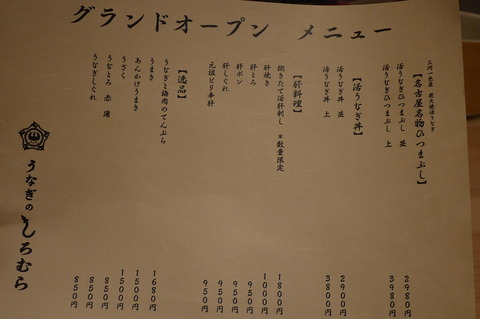 グランドオープン メニュー
三河一色産 炭火焼活うなぎ
【名古屋名物ひつまぶし】
活うなぎひつまぶし 並 2980円
活うなぎひつまぶし 上 3980円
【活うなぎ丼】
活うなぎ丼 並 2900円
活うなぎ丼 上 3800円
【肝料理】
捌きたて活肝刺し *数量限定 1800円
肝焼き 1000円
肝とろ 950円
肝ポン 950円
肝しぐれ 950円
元祖ピリ辛肝 950円
【逸品】
うなぎと梅肉のてんぷら 1680円
うまき 1500円
あんかけうまき 1500円
うざく 850円
うなとろ 赤 850円
うなぎしぐれ 850円
うなぎの しろむら